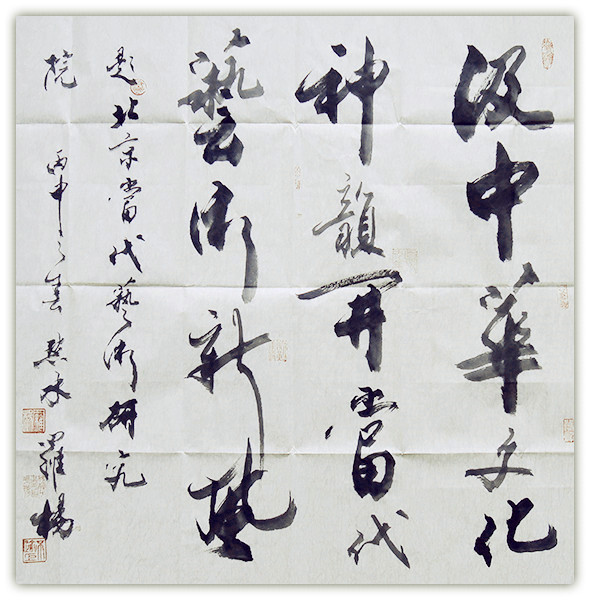 汲中華文化
神韻開當代
藝術新風
題北京當代藝術研究
院 丙申之春 水 羅楊